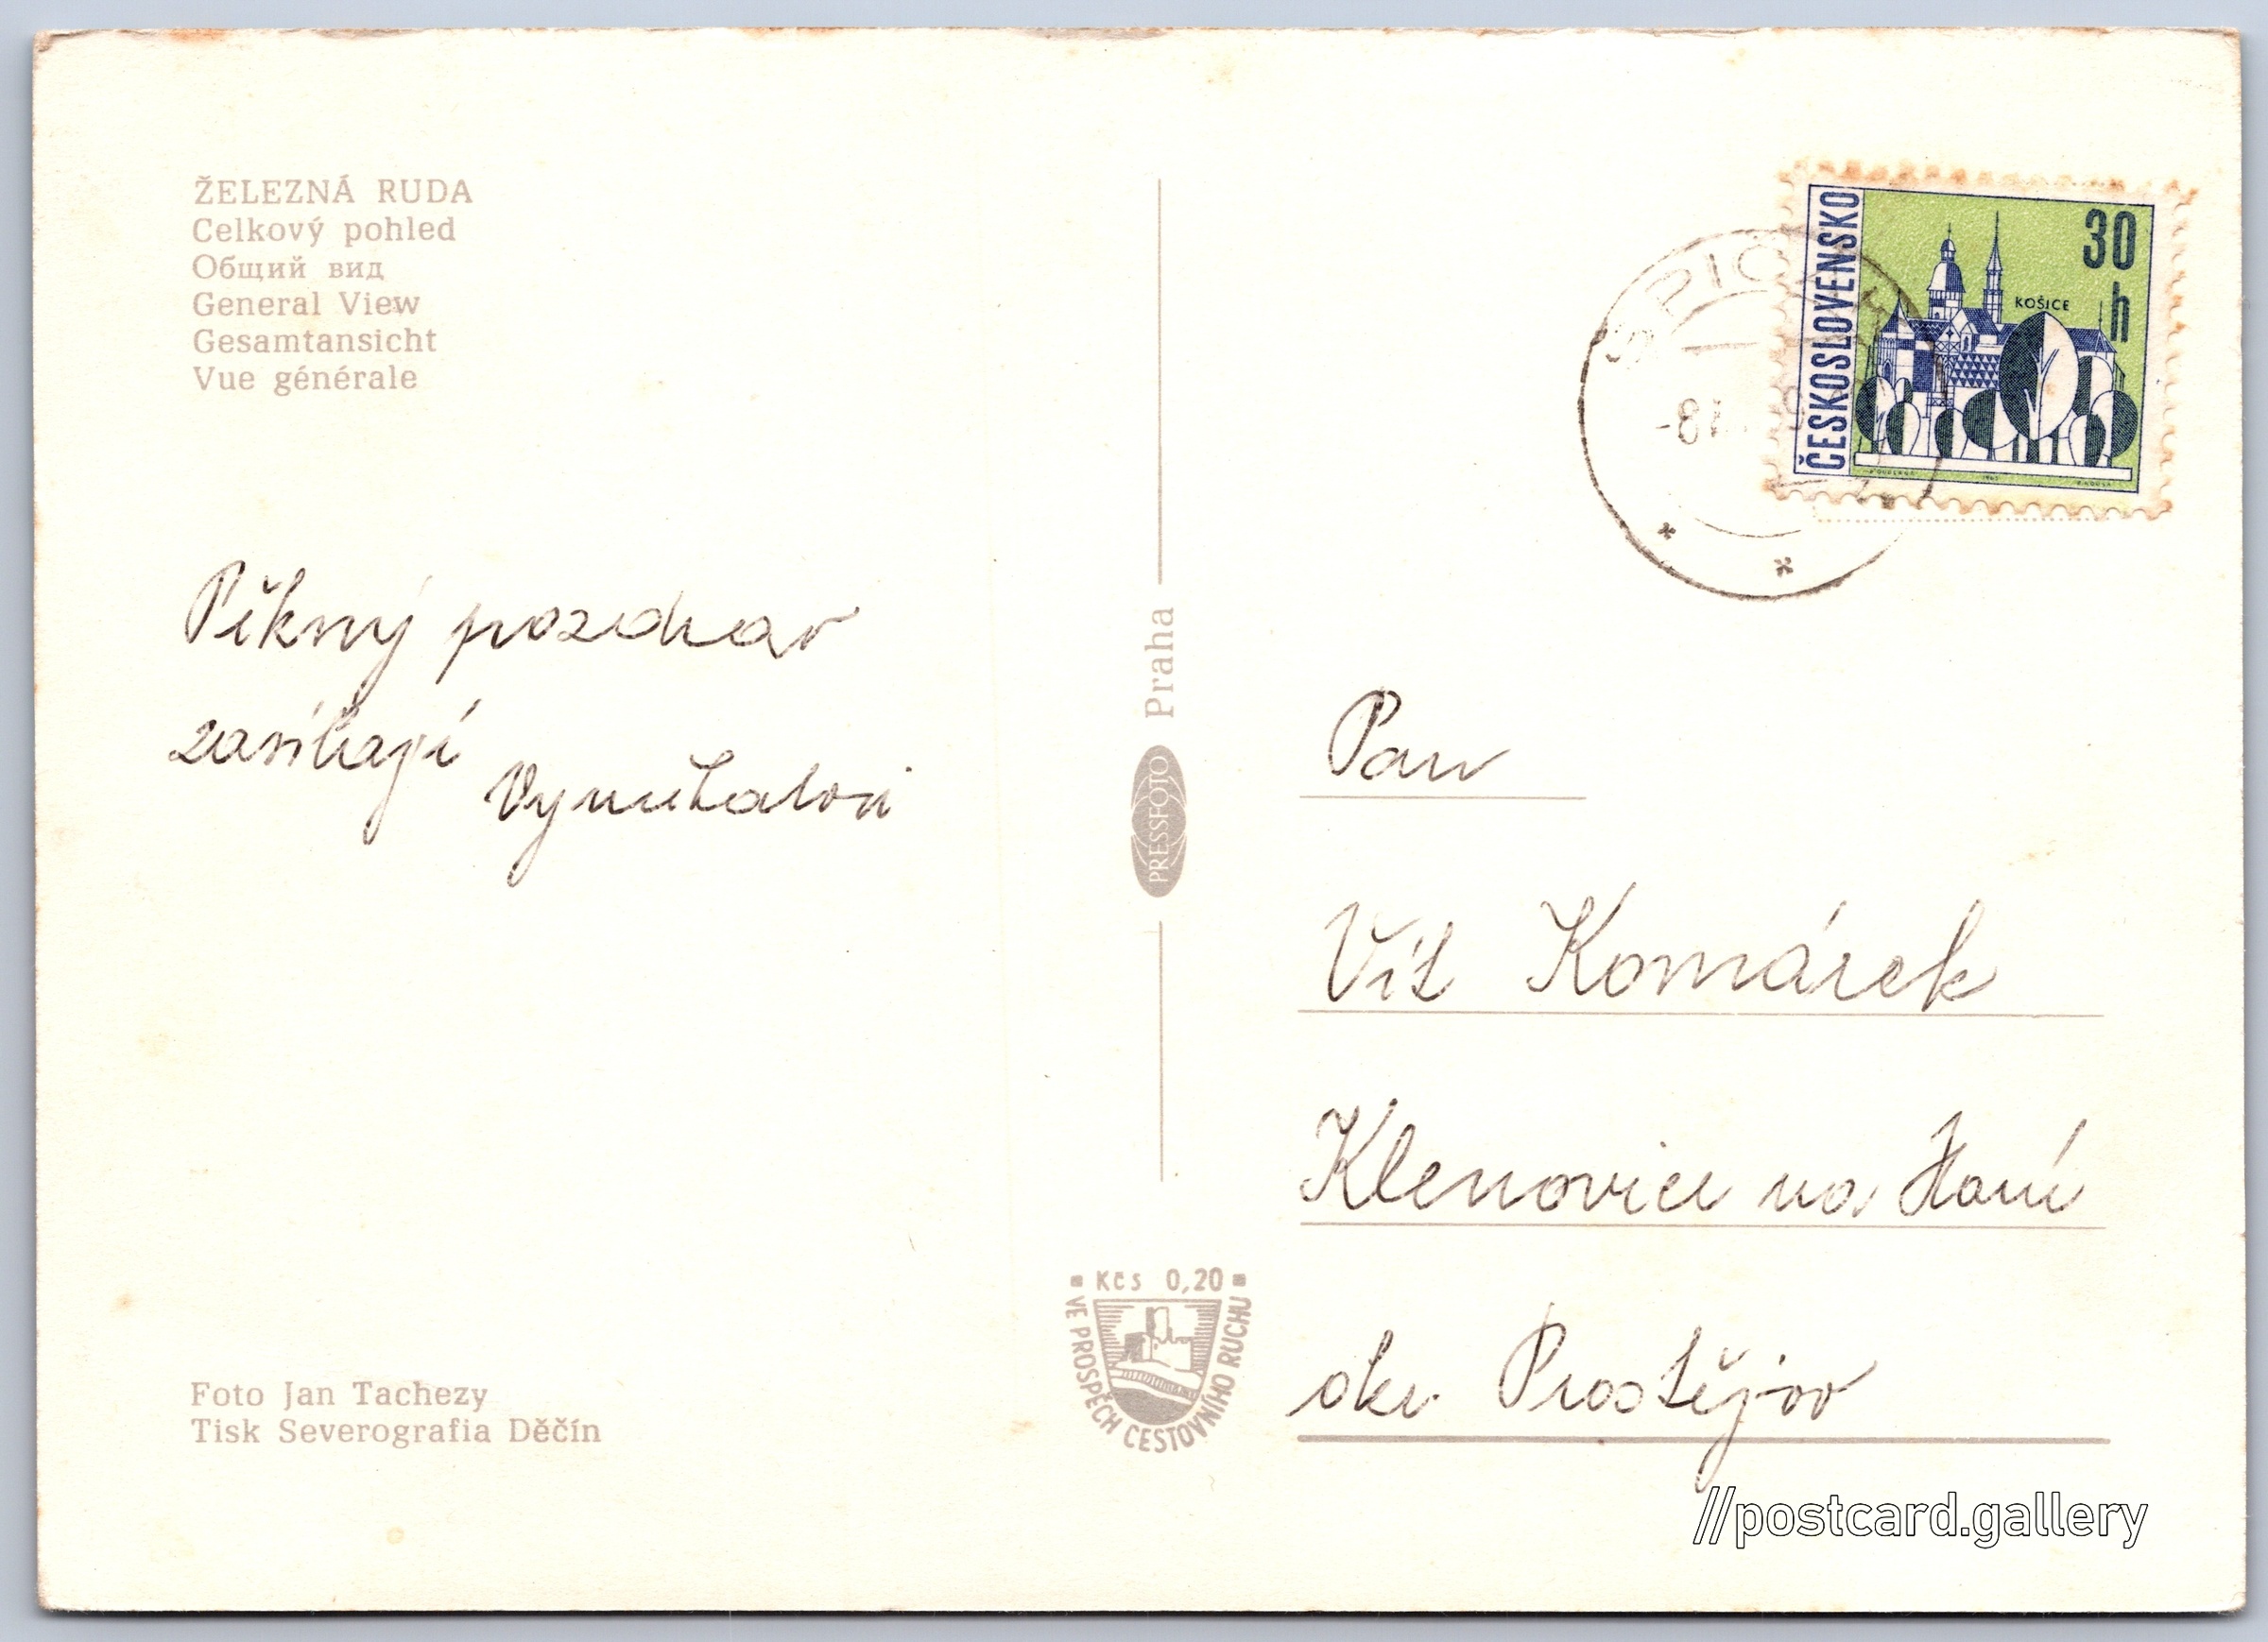 ŽELEZNÁ RUDA
Celkový pohled
Общий вид
General View
Gesamtansicht
Vue générale
Pěkný pozdrav
zasílají
Foto Jan Tachezy
Tisk Severografia Děčín
PRESSFOTO Praha
Kčs 0,20
VE PROSPĚCH CESTOVNÍHO RUCHU
ČESKOSLOVENSKO
30 h
KOŠICE
Pan
Vít Komárek
Klenovice na Hané
okr. Prostějov
//postcard.gallery